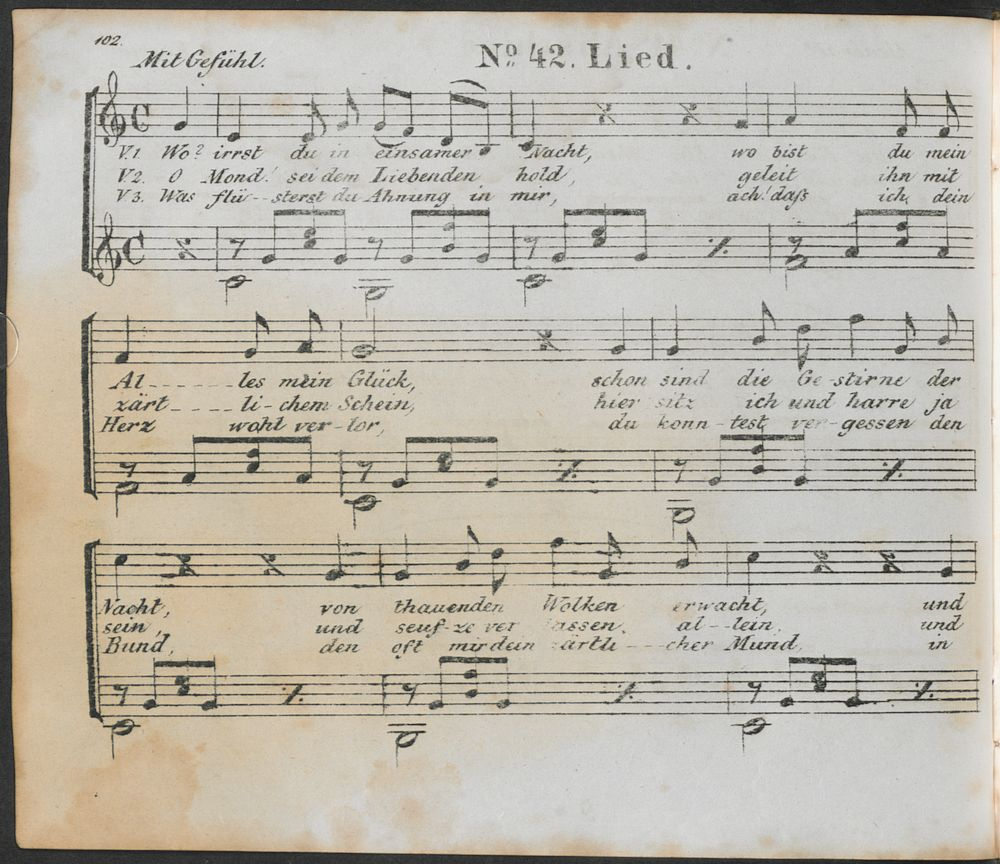 102.
Mit Gefühl. Nº 42. Lied.
V.1. Wo? irrst du in einsamer Nacht, wo bist du mein
V2. O Mond! sei dem Liebenden hold, geleit ihn mit
V3. Was flü--sterst du Ahnung in mir, ach! daß ich dein
Al------les mein Glück, schon sind die Ge-stirne der
zärt----li-chem Schein, hier sitz ich und harre ja
Herz wohl ver-lor, du konn-test ver-gessen den
Nacht, von thauenden Wolken erwacht, und
sein, und seuf-ze ver assen, al--lein, und
Bund, den oft mir dein ärtli---cher Mund, in